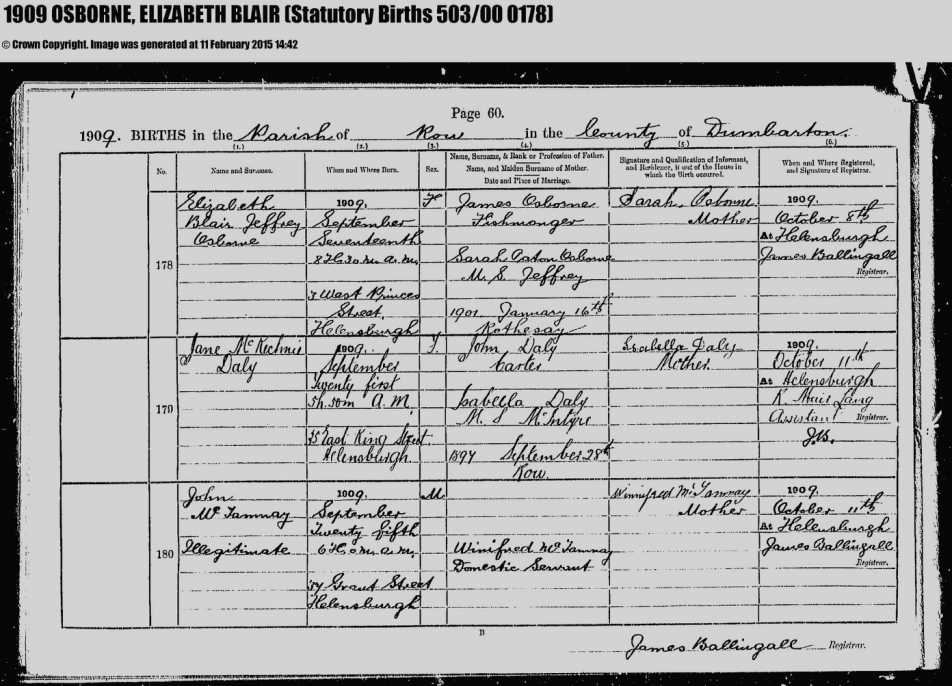 1909 OSBORNE, ELIZABETH BLAIR (Statutory Births 503/00 0178)
© Crown Copyright. Image was generated at 11 February 2015 14:42
Page 60.
1909. BIRTHS in the Parish of Row in the County of Dumbarton.
(1.) (2.) (3.) (4.) (5.) (6.)
No.
Name and Surname.
When and Where Born.
Sex.
Name, Surname, & Rank or Profession of Father.
Name, and Maiden Surname of Mother.
Date and Place of Marriage.
Signature and Qualification of Informant,
and Residence, if out of the House in
which the Birth occurred.
When and Where Registered,
and Signature of Registrar.
178
Elizabeth
Blair Jeffrey
Osborne
1909.
September
Seventeenth
8 H. 30 m. a.m.
West Princes
Street.
Helensburgh
F
James Osborne
Fishmonger
Sarah Paton Osborne
M. S. Jeffrey
1901. January 16th
Rothesay
Sarah Osborne.
Mother
1909.
October 8th
At Helensburgh
James Ballingall
Registrar.
170
Jane McKechnie
Daly
1909.
September
Twenty first
5h. 50m A.M.
35 East King Street.
Helensburgh
F.
John Daly
Carter
Isabella Daly
M. S McIntyre
1897 September 28th
Row.
Isabella Daly
Mother.
1909.
October 11th
At Helensburgh
K. Muir Lang
Assistant Registrar.
J.B.
180
John
McTamnay
Illegitimate
1909.
September
Twenty fifth
6 H. 0 m. a.m.
37 Grant Street
Helensburgh
M.
Winifred McTamnay
Domestic Servant
Winnifred McTamnay
Mother
1909.
October 11th
At Helensburgh
James Ballingall
Registrar.
James Ballingall Registrar.